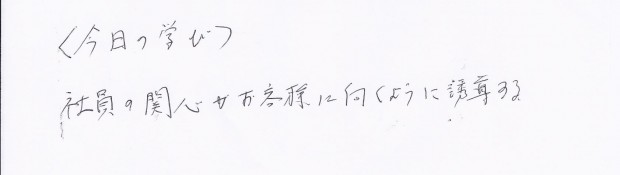 〈今日の学び〉
社員の関心がお客様に向くように誘導する